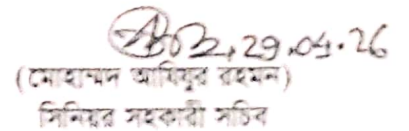 29.04.26
(মোহাম্মদ আতিকুর রহমান)
সিনিয়র সহকারী সচিব